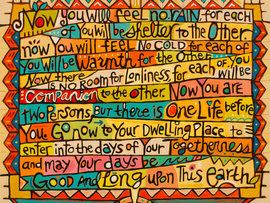 NOW you will feel no RAIN for each
of you will be shelter to the other
now you will feel NO COLD for each of
you will be warmth for the other
Now there is NO ROOM for Lonliness, for each of you will be
Companion to the other. Now you are
two persons, but there is One Life before
you. Go now to your Dwelling Place to
enter into the days of your Togetherness
and may your days be
GOOD AND Long upon This Earth.